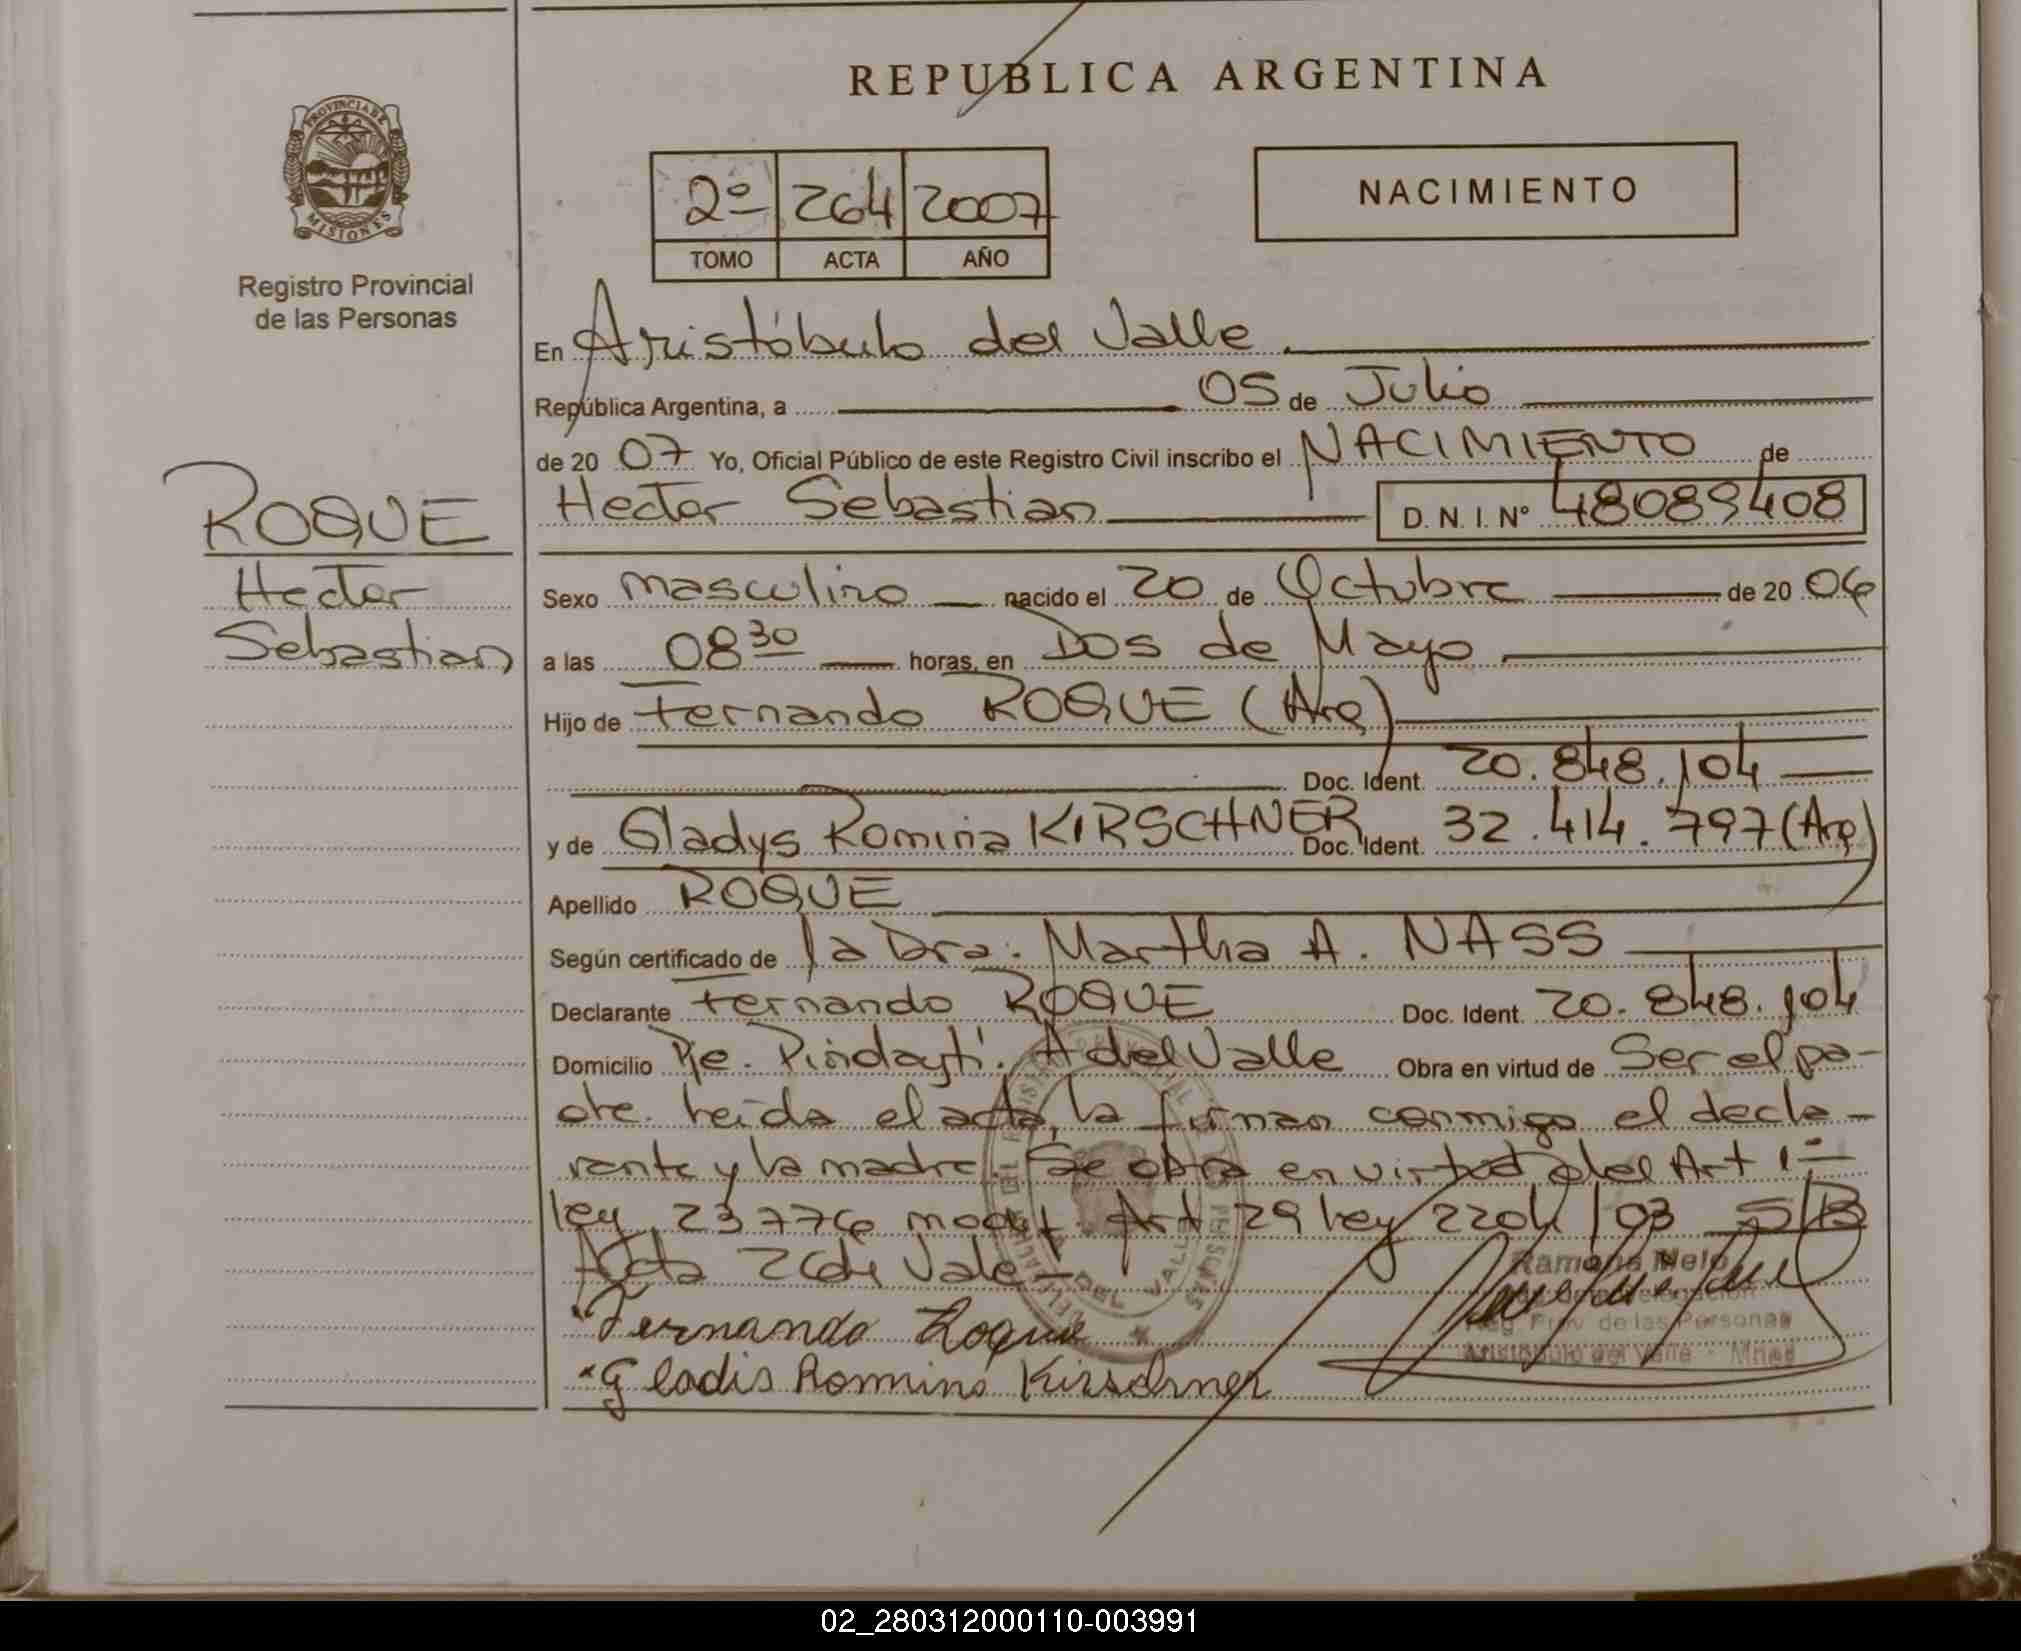 REPUBLICA ARGENTINA
PROVINCIA DE MISIONES
Registro Provincial
de las Personas
2º 264 2007
TOMO ACTA AÑO
NACIMIENTO
En Aristóbulo del Valle
República Argentina, a 05 de Julio
de 20 07 Yo, Oficial Público de este Registro Civil inscribo el NACIMIENTO de
Hector Sebastian D. N. I. Nº 48089408
ROQUE
Hector
Sebastian
Sexo masculino nacido el 20 de Octubre de 20 06
a las 08 30 horas, en Dos de Mayo
Hijo de Fernando ROQUE (Arg)
Doc. Ident. 20.848.104
y de Gladys Romina KIRSCHNER Doc. Ident. 32.414.797 (Arg)
Apellido ROQUE
Según certificado de la Dra. Martha A. NASS
Declarante Fernando ROQUE Doc. Ident. 20.848.104
Domicilio Pje. Pindayti. A del Valle Obra en virtud de Ser el pa-
dre. Leida el acta, la firman conmigo el decla-
rante y la madre Se obra en virtud del Art 1º
ley 23776 modif. Art 29 Ley 2204/03 S/B
Acta 264 Vale-
"Fernando Roque
"Gladis Romina Kirschner
Ramona Melo
Delegación
Reg. Prov. de las Personas
Aristóbulo del Valle - Mnes
02_280312000110-003991